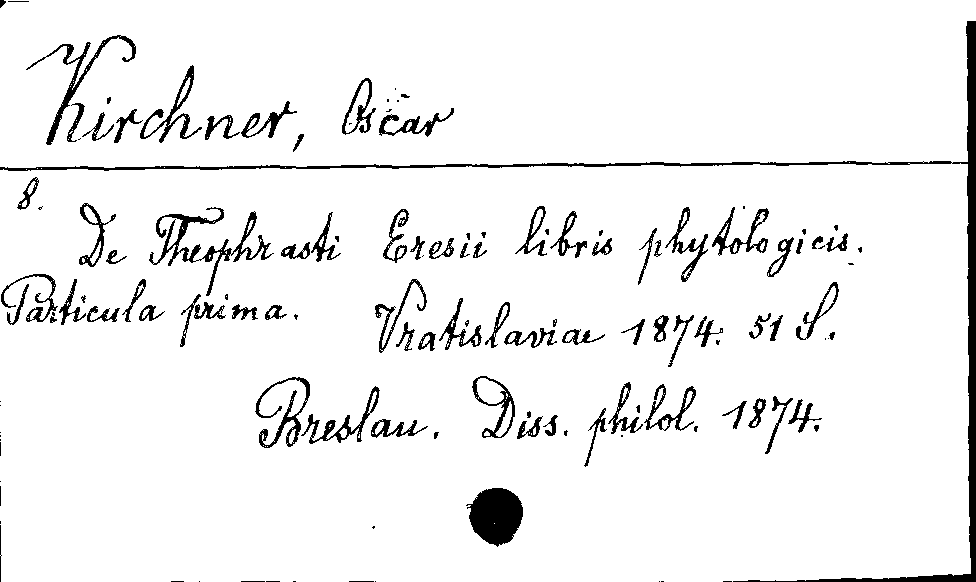 Kirchner, Oscar
8.
De Theophrasti Eresii libris phytologicis.
Particula prima. Vratislaviae 1874. 51 S.
Breslau. Diss. philol. 1874.